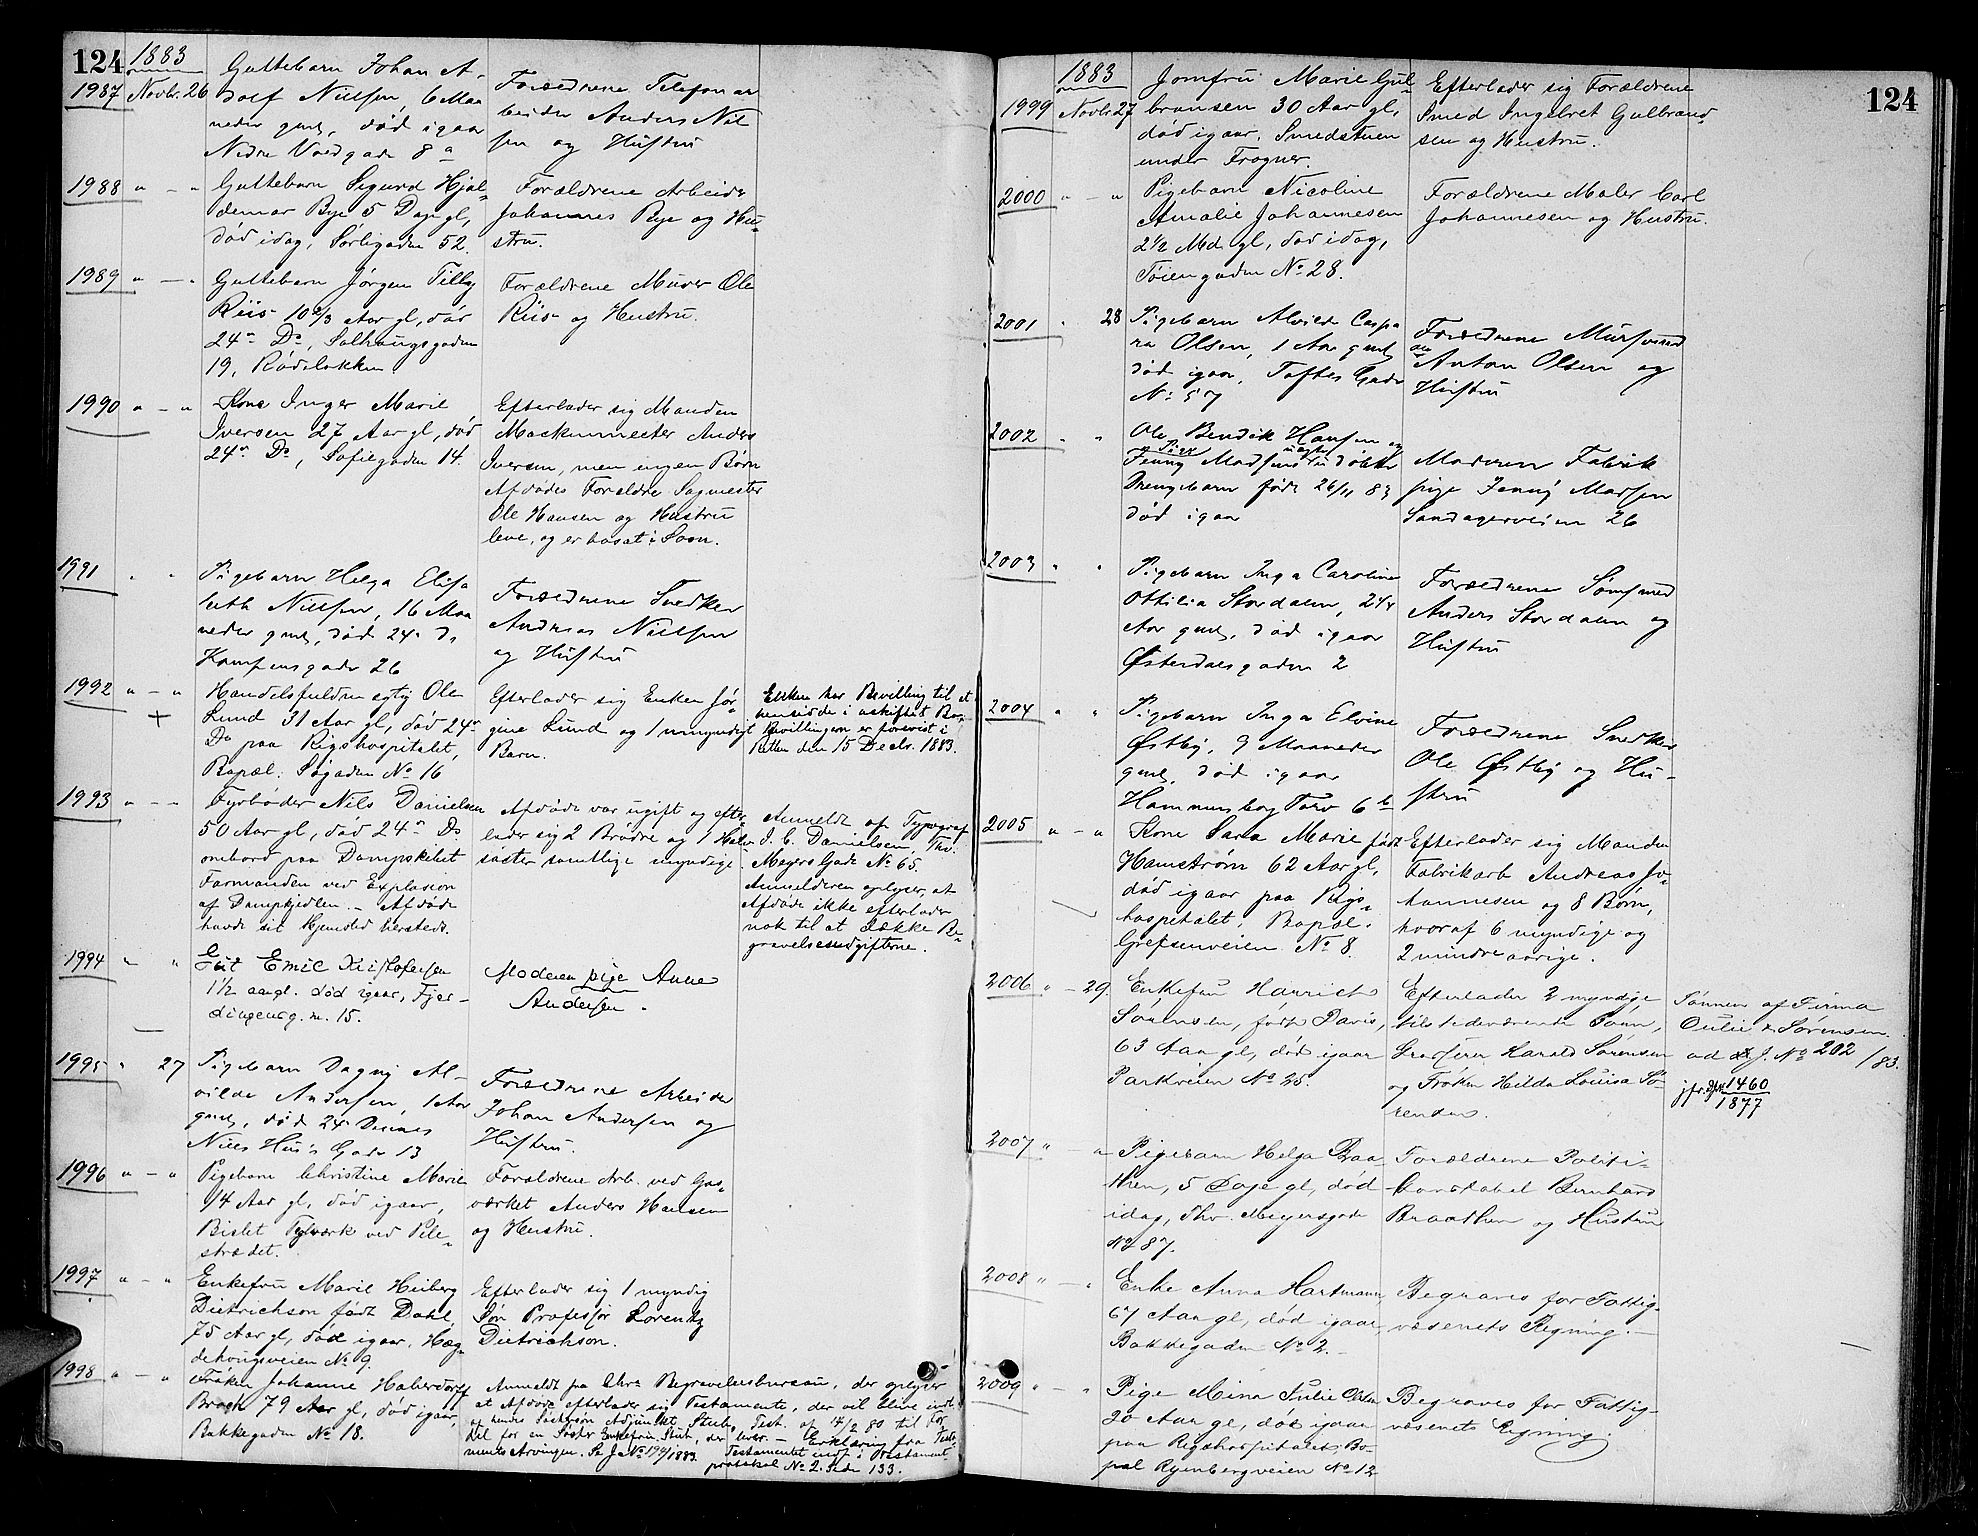 124
1883
1987 Novbr. 26 Guttebarn Johan A-
dolf Nielsen, 6 Maa
neder gml, død igaar
Nedre Voldgade 8 a
Forældrene Telefonar
beider Anders Niel
sen og Hustru
1988 " — " Guttebarn Sigurd Hjal-
demar Bye 5 Dage gl,
død idag, Sørligaden 52.
Forældrene Arbeider
Johannes Bye og Hu-
stru.
1989 " — " Guttebarn Jørgen Tilby
Riis 10 2/3 Aar gl, død
24de Ds, Solhaugsgaden
19, Rodeløkken
Forældrene Murer Ole
Riis og Hustru.
1990 " — " Kone Inger Marie
Iversen 27 Aar gl, død
24de Ds, Sofiegaden 14.
Efterlader sig Manden
Maskinmester Anders
Iversen, men ingen Børn
Afdødes Forældre Sagmester
Ole Hansen og Hustru
leve, og er bosat i
1991 " " Pigebarn Helga Elisa
beth Nielsen, 16 Maa
neder gml, død 24de ds
Kampensgade 26
Forældrene Snedker
Andreas Nielsen
og Hustru
1992 " — " Handelsfuldmægtig Ole
Lund 31 Aar gl, død 24de
Ds paa Rigshospitalet,
Bopæl: Søgaden No 16
Efterlader sig Enken Jør-
gine Lund og 1 umyndigt
Barn.
Enken har Bevilling til at
hensidde i uskiftet Bo,
Bevillingen er forevist i
Retten den 15 Decbr. 1883.
1993 " — " Fyrbøder Nils Danielsen
50 Aar gl, død 24de Ds
ombord paa Dampskibet
Farmanden ved Explosion
af Dampkjedlen. — Afdøde
havde sit Hjemsted hersteds.
Afdøde var ugift og efter-
lader sig 2 Brødre og 1 Halv
søster samtlige myndige.
Anmeldt af Typograf
I. C. Danielsen, Thv.
Meyers Gade No 65.
Anmelderen oplyser, at
Afdøde ikke efterlader
nok til at dække Be-
gravelsesudgifterne.
1994 " " Gut Emil Kristofersen
1½ aar gl. død igaar, Fjer-
dingen g. n. 15.
Moderen pige Anne
Andersen.
1995 " 27 Pigebarn Dagny Al-
vilde Andersen, 1 Aar
gml, død 24 Dennes
Niels Huus Gade 13
Forældrene Arbeider
Johan Andersen og
Hustru.
1996 " — " Pigebarn Christine Marie
1/4 Aar gl, død igaar,
Bislet Teglværk ved Pile-
strædet.
Forældrene Arb. ved Gas-
værket Anders Hansen
og Hustru.
1997 " — " Enkefru Marie Heiberg
Dietrichson født Dahl,
75 Aar gl, død igaar, Hæg-
dehougsveien No 9.
Efterlader sig 1 myndig
Søn Professor Lorentz
Dietrichson.
1998 " — " Frøken Johanne Haberdorff
Broch 79 Aar gl, død igaar,
Bakkegaden No 18.
Anmeldt fra Chra Begravelsesbureau, der oplyser
at Afdøde efterlader sig Testamente, der vil blive indl.
af hendes Søstersøn Adjunkt Stub, Test. af 14/2 80 til For
Del for en Søster Enkefru Stub, der lever. — Erklæring fra Testa-
mentsArvingen. Se J No 199/1883. Testamentet indf. i Testament
protokol No 2. Side 133.
124
1883
1999 Novbr 27 Jomfru Marie Gul-
bransen 30 Aar gl,
død igaar. Smedstuen
under Frogner.
Efterlader sig Forældrene
Smed Ingebret Gulbrand-
sen og Hustru.
2000 " — " Pigebarn Nicoline
Amalie Johannesen
2½ Md. gl, død idag,
Tøiengaden No 28.
Forældrene Maler Carl
Johannesen og Hustru.
2001 " 28 Pigebarn Alvilde Caspa
ra Olsen, 1 Aar gml,
død igaar, Toftes Gade
No 57
Forældrene Mursvend
Anton Olsen og
Hustru
2002 " " Ole Bendik Hansen og
Pige
Jenny Madsens uægte udøbte
Drengebarn født 26/11 83
død igaar
Moderen Fabrik
pige Jenny Madsen
Sandagerveien 26
2003 " " Pigebarn Inga Caroline
Ottilia Stordalen, 2 1/4
Aar gml, død igaar
Østerdalsgaden 2
Forældrene Sømsmed
Anders Stordalen og
Hustru
2004 " " Pigebarn Inga Elvine
Østby, 9 Maaneder
gml, død igaar
Hammersborg Torv 6 b
Forældrene Snedker
Ole Østby og Hu-
stru
2005 " — " Kone Sara Marie født
Hamstrøm 62 Aar gl,
død igaar paa Rigs-
hospitalet, Bopæl:
Grefsenveien No 8.
Efterlader sig Manden
Fabrikarb Andreas Jo-
hannesen og 8 Børn,
hvoraf 6 myndige og
2 mindreaarige.
2006 " — 29. Enkefru Henriette
Sörensen, født Davis,
63 Aar gl, død igaar
Parkveien No 25.
Efterlader 2 myndige
tilstedeværende Børn,
Grosserer Harald Sörensen
og Frøken Hilda Louisa Sö-
rensen.
Sønnen af Firma
Oulie & Sörensen.
ad J. No 202/83.
jfr. 1460
1877
2007 " — " Pigebarn Helga Braa-
then, 5 Dage gl, død
idag, Thv Meyersgade
No 87.
Forældrene Politi-
konstabel Bernhard
Braathen og Hustru
2008 " — " Enke Anna Hartmann,
67 Aar gl, død igaar,
Bakkegaden No 2.
Begraves for Fattig-
væsenets Regning. —
2009 " — " Pige Mina Julie Olsen
20 Aar gl, død igaar
paa Rigshospitalet, Bo-
pæl Ryenbergveien No 12
Begraves for Fattig-
væsenets Regning.